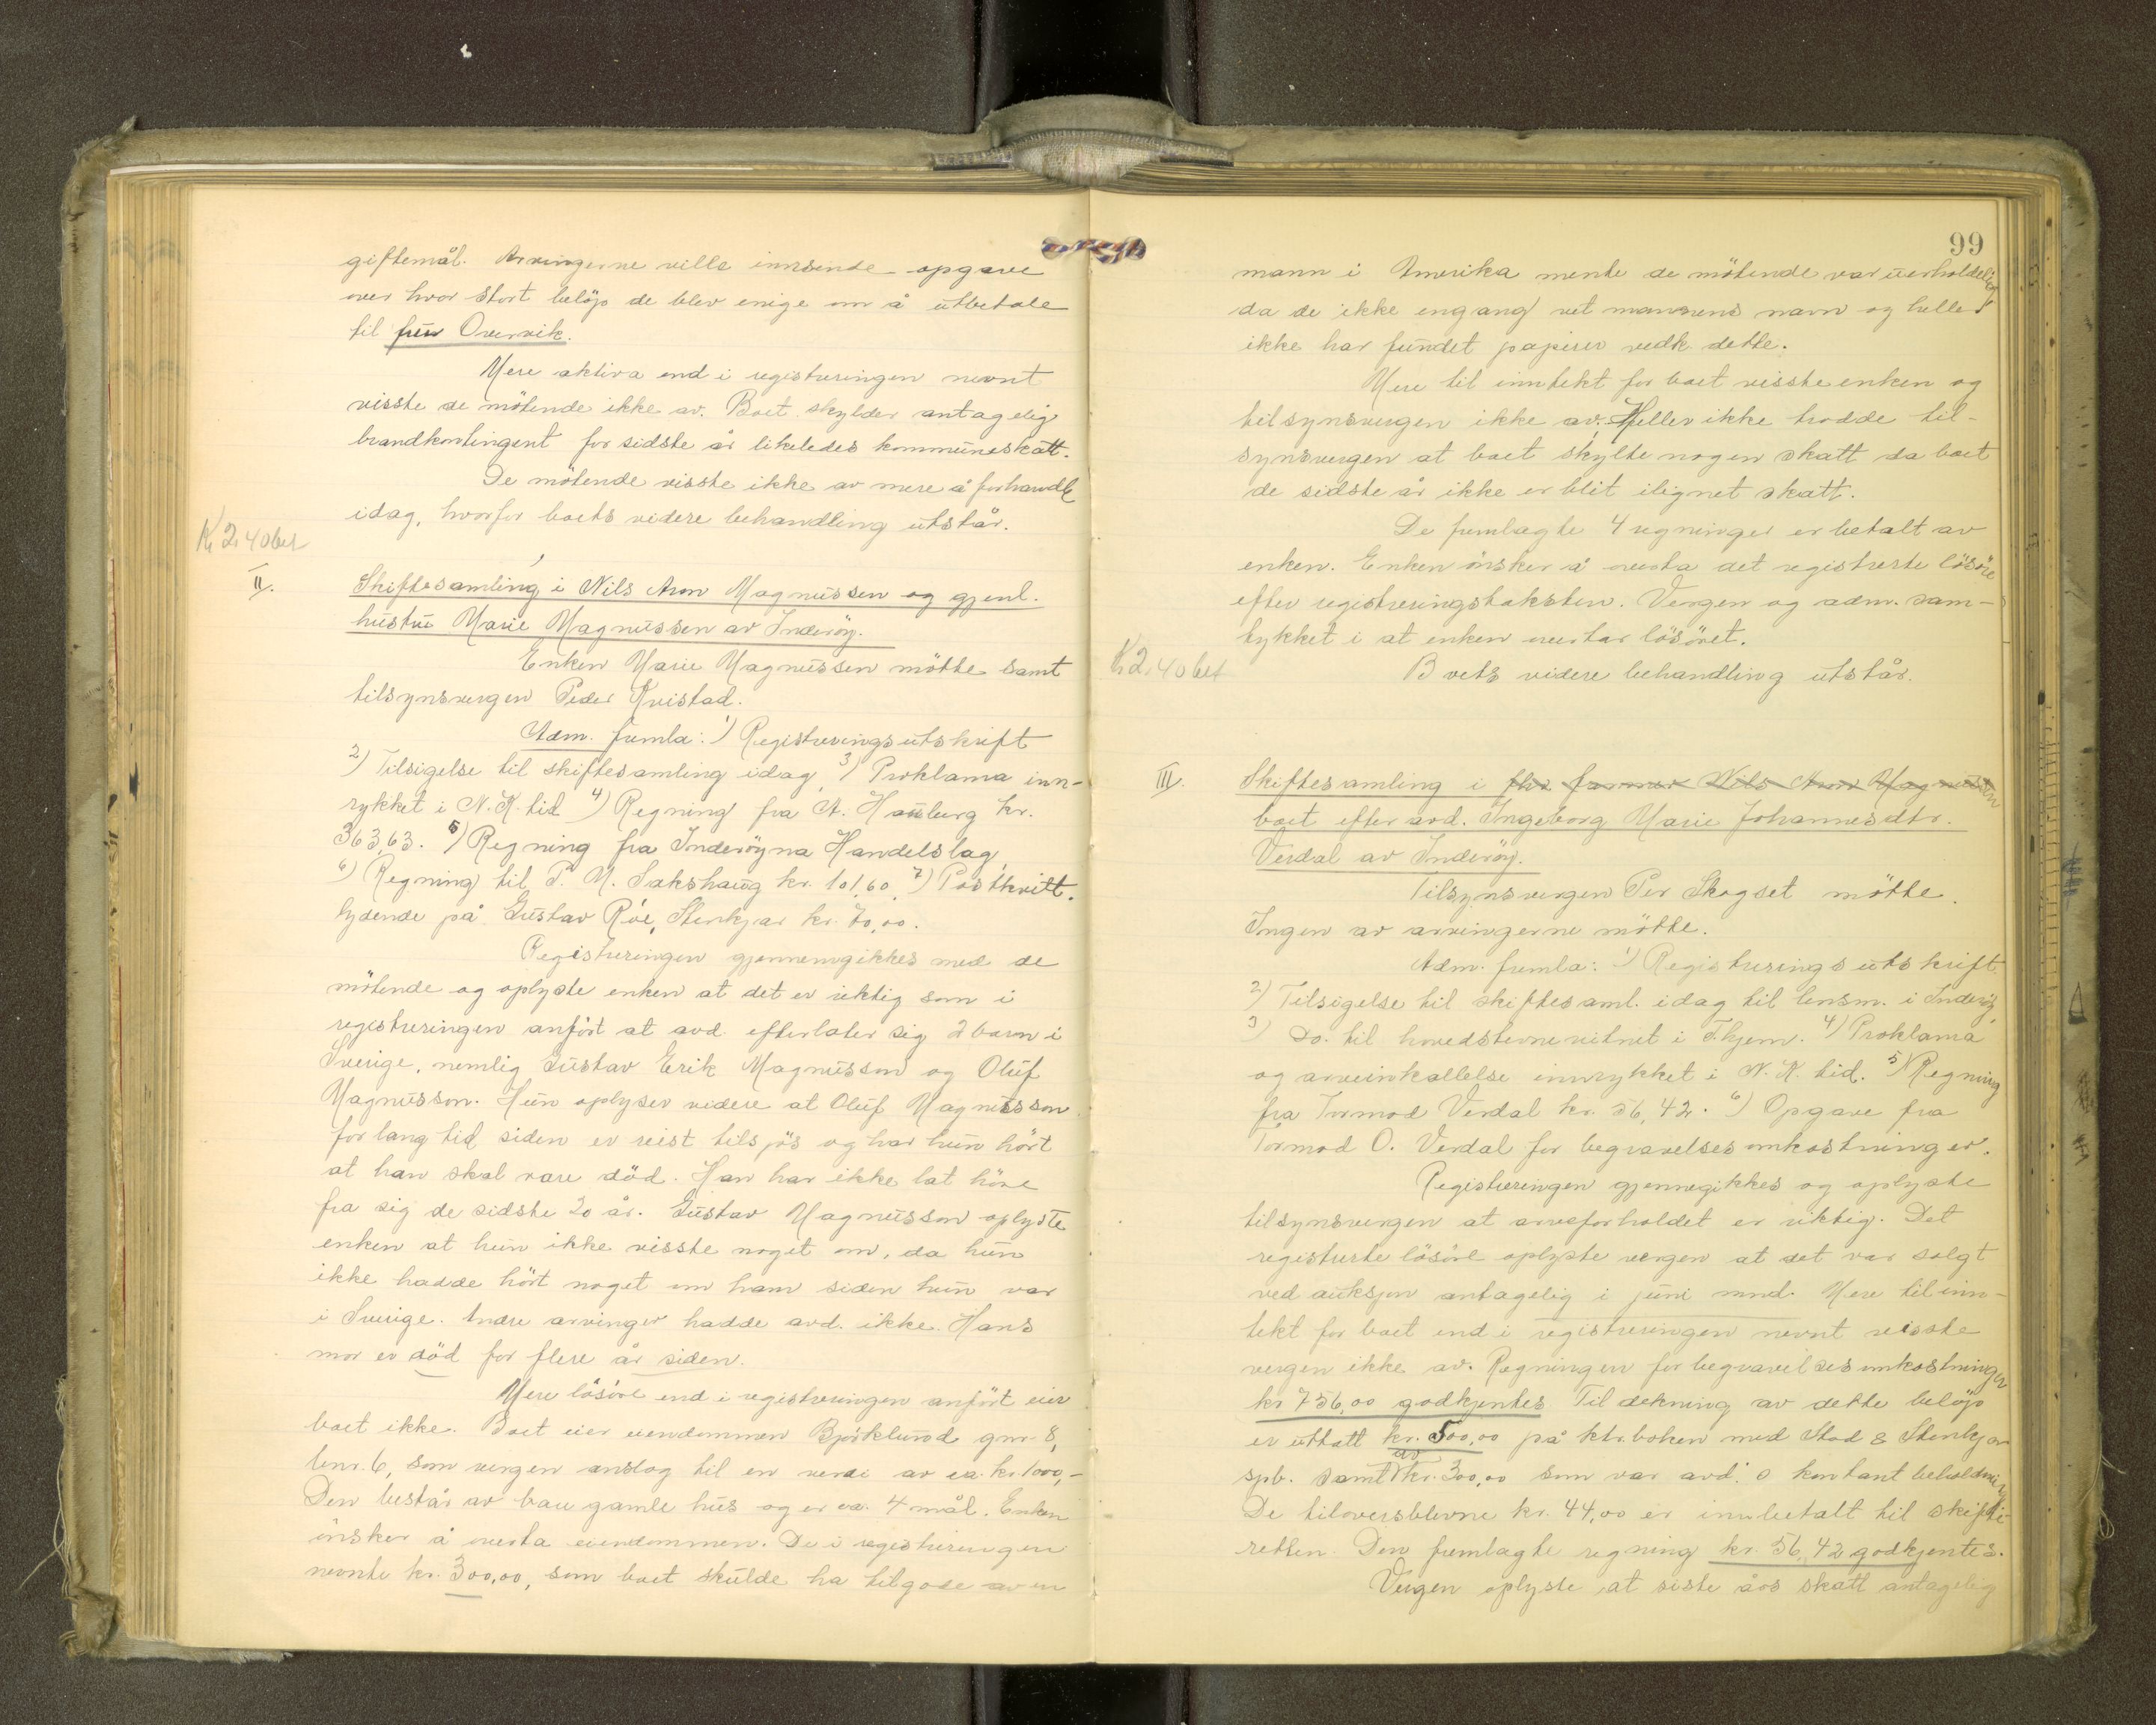 giftemål. Arvingerne ville innsende opgave
over hvor stort belöp de blev enige om å utbetale
til fru Overvik.
Mere aktiva end i registreringen nevnt
visste de mötende ikke av. Boet skylder antagelig
brandkontingent for sidste år likeledes kommuneskatt.
De mötende visste ikke av mere å forhandle
idag, hvorfor boets videre behandling utstår.
K 2,40 bet
II.
Skiftesamling i Nils Aron Magnussen og gjenl.
hustru Marie Magnussen av Inderöy.
Enken Marie Magnussen mötte samt
tilsynsvergen Peder Kvistad.
Adm. fremla: 1) Registreringsutskrift
2) Tilsigelse til skiftesamling idag, 3) Proklama inn-
rykket i N.K. tid 4) Regning fra A. Hausberg kr.
363,63. 5) Regning fra Inderöyna Handelslag,
6) Regning til P. M. Sakshaug kr. 101,60. 7) Postkvitt.
lydende på Gustav Röe, Stenkjær kr. 70,00.
Registreringen gjennemgikkes med de
mötende og oplyste enken at det er riktig som i
registreringen anfört at avd. efterlater sig 2 barn i
Sverige, nemlig Gustav Erik Magnusson og Oluf
Magnusson. Hun oplyser videre at Oluf Magnusson
for lang tid siden er reist tilsjös og har hun hört
at han skal være död. Han har ikke lat höre
fra sig de sidste 20 år. Gustav Magnusson oplyste
enken at hun ikke visste noget om, da hun
ikke hadde hört noget om ham siden hun var
i Sverige. Andre arvinger hadde avd. ikke. Hans
mor er död for flere år siden.
Mere lösöre end i registreringen anfört eier
boet ikke. Boet eier eiendommen Björklund gnr. 8,
bnr. 6, som vergen anslog til en verdi av ca. kr. 1000,-
Den består av bare gamle hus og er ca. 4 mål. Enken
önsker å overta eiendommen. De i registreringen
nevnte kr. 300,00, som boet skulde ha tilgode av en
99
mann i Amerika mente de mötende var uerholdelig
da de ikke engang vet mannens navn og heller
ikke har fundet papirer vedk. dette.
Mere til inntekt for boet visste enken og
tilsynsvergen ikke av. Heller ikke trodde til-
synsvergen at boet skylte nogen skatt da boet
de sidste år ikke er blit ilignet skatt.
De fremlagte 4 regninger er betalt av
enken. Enken önsker å overta det registrerte lösöre
efter registreringstaksten. Vergen og adm. sam-
tykket i at enken overtar lösöret.
K 2,40 bet
Boets videre behandling utstår.
III.
Skiftesamling i Nils Aron Magnussen
boet efter avd. Ingeborg Marie Johannesdtr.
Verdal av Inderöy.
Tilsynsvergen Per Skogset mötte.
Ingen av arvingerne mötte.
Adm. fremla: 1) Registreringsutskrift.
2) Tilsigelse til skiftesaml. idag til lensm. i Inderöy,
3) Do. til hovedstevnevitnet i T.hjem. 4) Proklama
og arveinkallelse innrykket i N.K. tid. 5) Regning
fra Tormod Verdal kr. 56,42. 6) Opgave fra
Tormod O. Verdal for begravelsesomkostninger.
Registreringen gjennegikkes og oplyste
tilsynsvergen at arveforholdet er riktig. Det
registrerte lösöre oplyste vergen at det var solgt
ved auksjon antagelig i juni mnd. Mere til inn-
tekt for boet end i registreringen nevnt visste
vergen ikke av. Regningen for begravelsesomkostninger
kr. 756,00 godkjentes Til dekning av dette belöp
er uttatt kr. 500,00 på ktr.boken med Stod & Stenkjær
spb. samt av kr. 300,00 som var avd.s kontant beholdning
De tiloversblevne kr. 44,00 er innbetalt til skifte-
retten. Den fremlagte regning kr. 56,42 godkjentes.
Vergen oplyste at siste års skatt antagelig